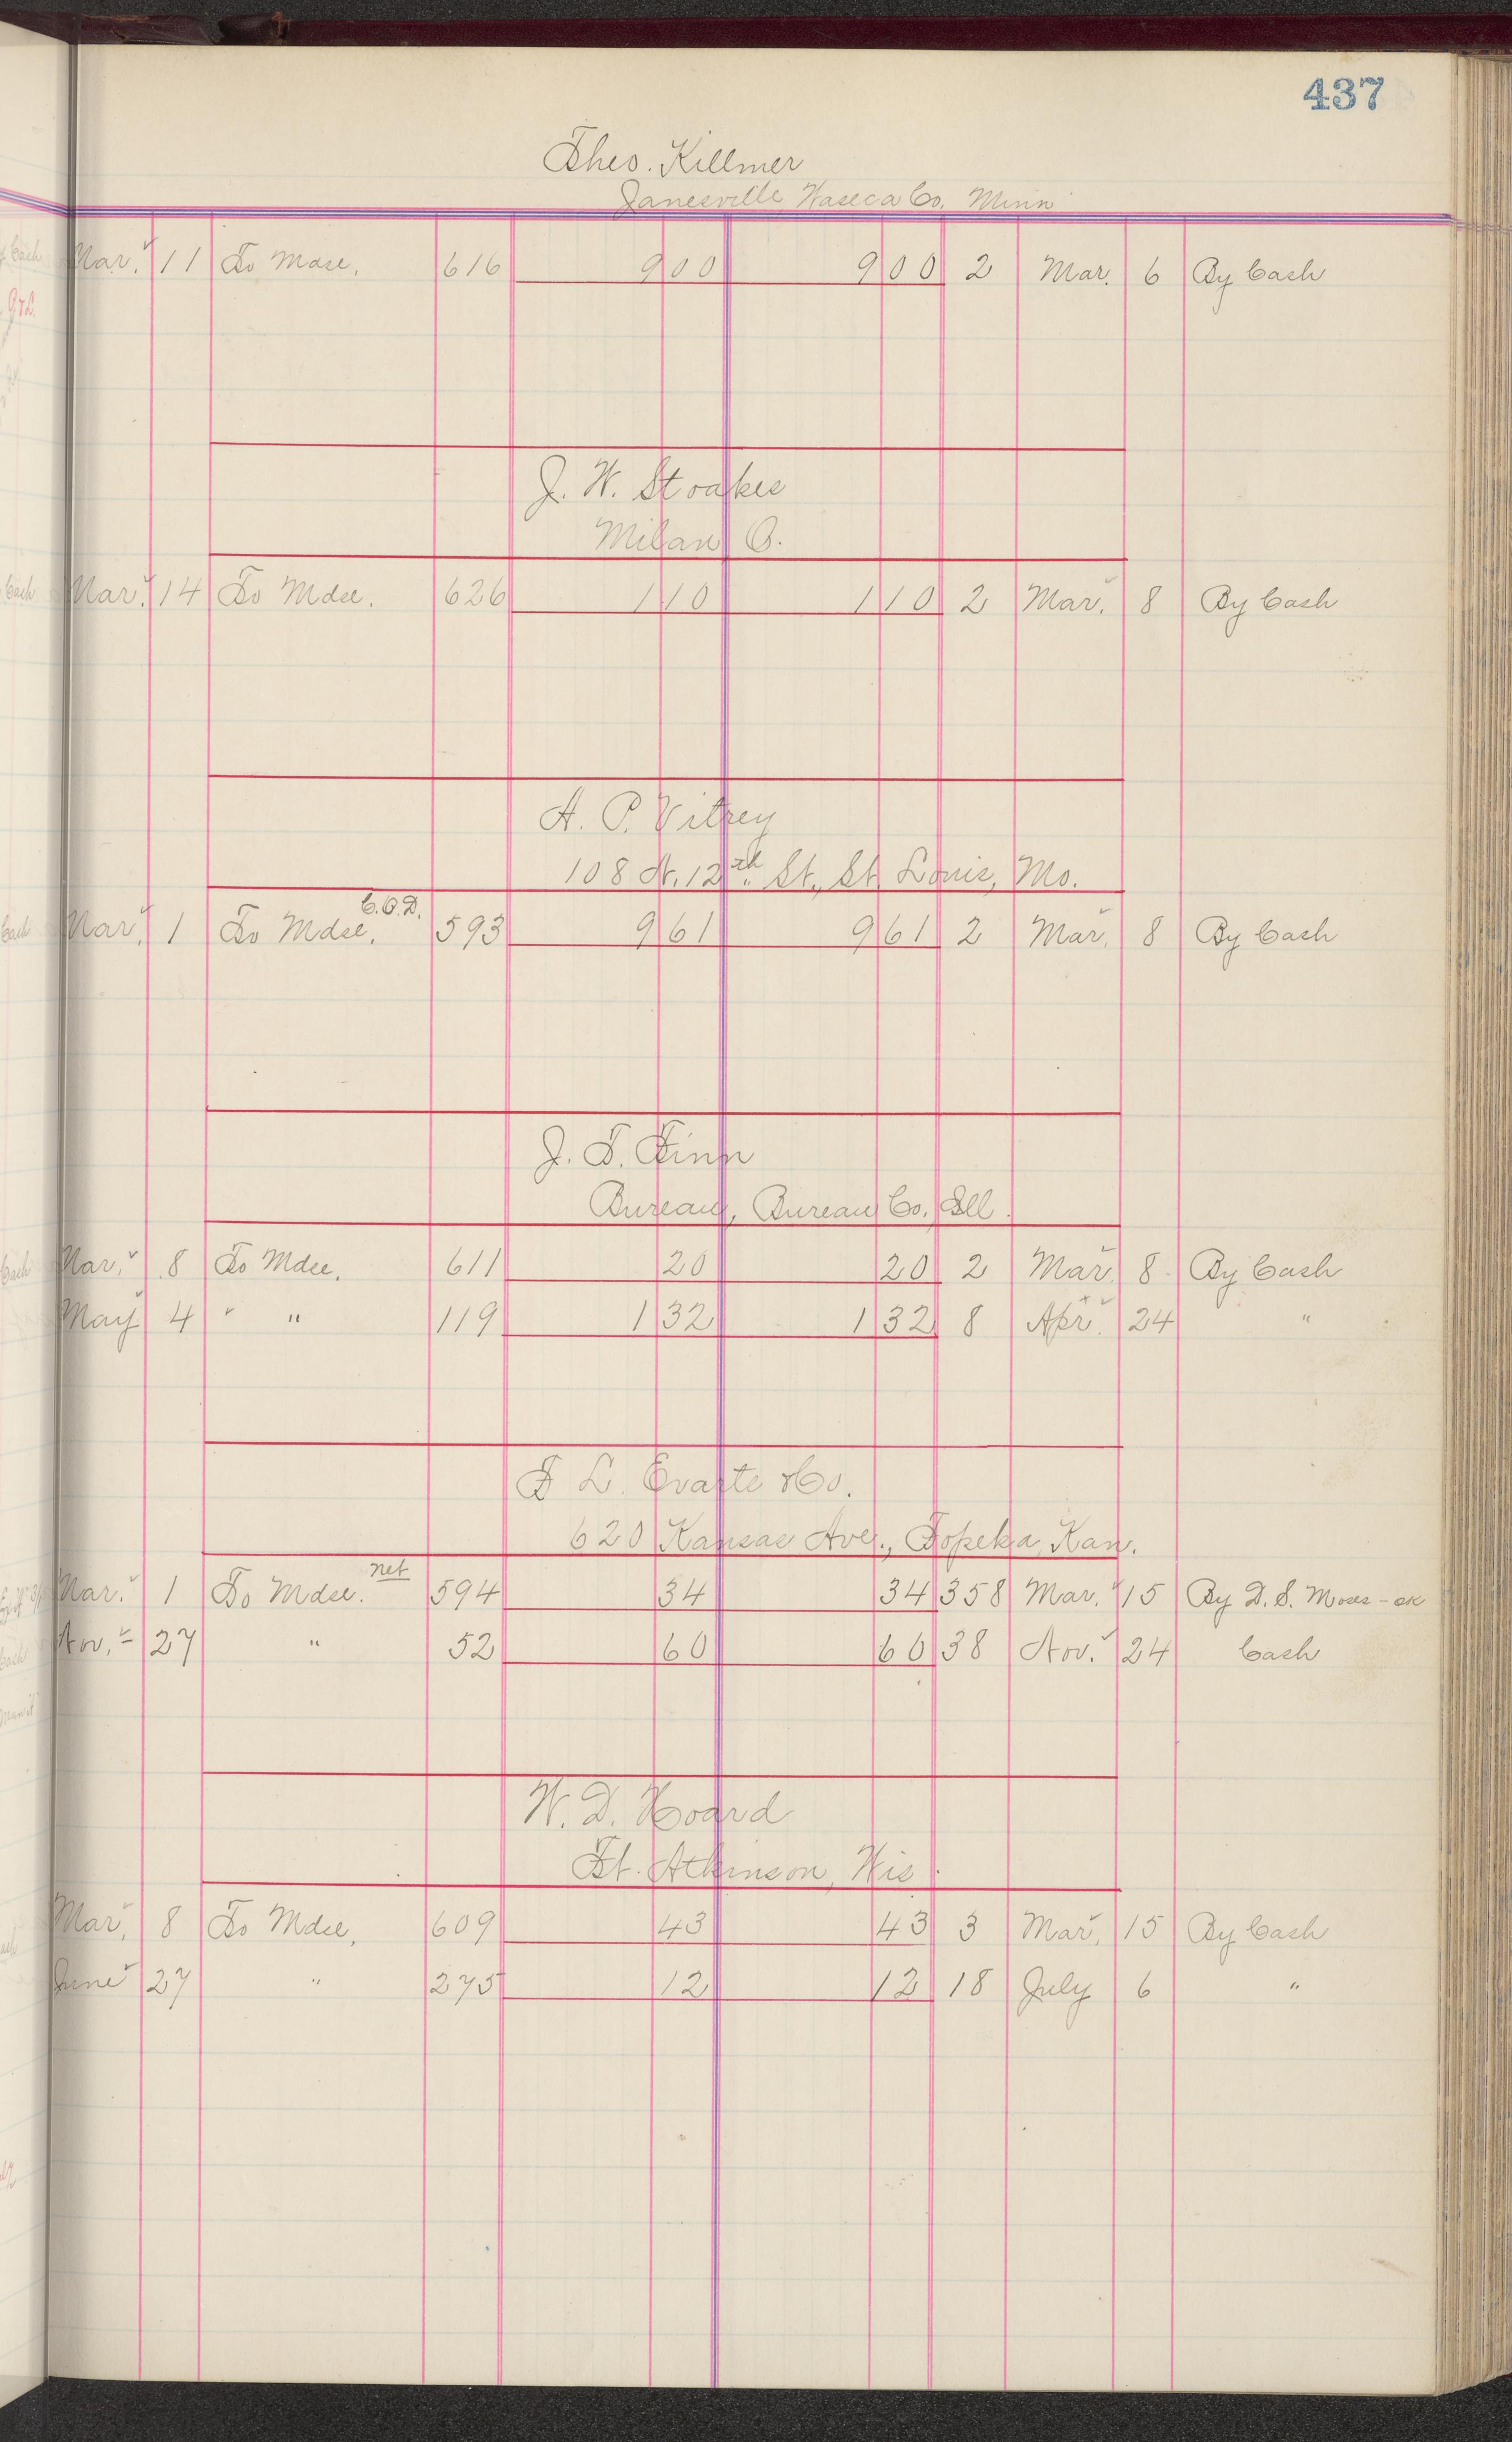 437
Theo. Killmer
Janesville, Waseca Co. Minn
Mar. 11 To Mdse. 616 9 00 9 00 2 Mar. 6 By Cash
J. W. Stoakes
Milan O.
Mar. 14 To Mdse. 626 1 10 1 10 2 Mar. 8 By Cash
A. P. Vitrey
108 N. 12th St., St. Louis, Mo.
C.O.D.
Mar. 1 To Mdse. 593 9 61 9 61 2 Mar. 8 By Cash
J. T. Finn
Bureau, Bureau Co. Ill.
Mar. 8 To Mdse. 611 20 20 2 Mar. 8 By Cash
May 4 " " 119 1 32 1 32 8 Apr. 24 "
L. Evarts & Co.
620 Kansas Ave., Topeka, Kan.
net
Mar. 1 To Mdse. 594 34 34 358 Mar. 15 By D. S. Moses -
Nov. 27 " 52 60 60 38 Nov. 24 Cash
W. D. Hoard
Ft. Atkinson, Wis.
Mar. 8 To Mdse. 609 43 43 3 Mar. 15 By Cash
June 27 " 275 12 12 18 July 6 "